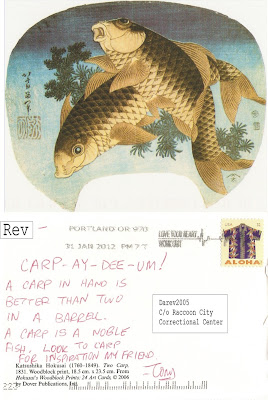 Rev
PORTLAND OR 970
31 JAN 2012 PM 7 T
LOVE YOUR HEART,
WORK OUT
USA
ALOHA
CARP-AY-DEE-UM!
A CARP IN HAND IS
BETTER THAN TWO
IN A BARREL.
A CARP IS A NOBLE
FISH, LOOK TO CARP
FOR INSPIRATION MY FRIEND
Darev2005
C/o Raccoon City
Correctional Center
Katsushika Hokusai (1760–1849). Two Carp.
1831. Woodblock print, 18.5 cm. x 23.5 cm. From
Hokusai's Woodblock Prints: 24 Art Cards, © 2006
by Dover Publications, Inc.
223